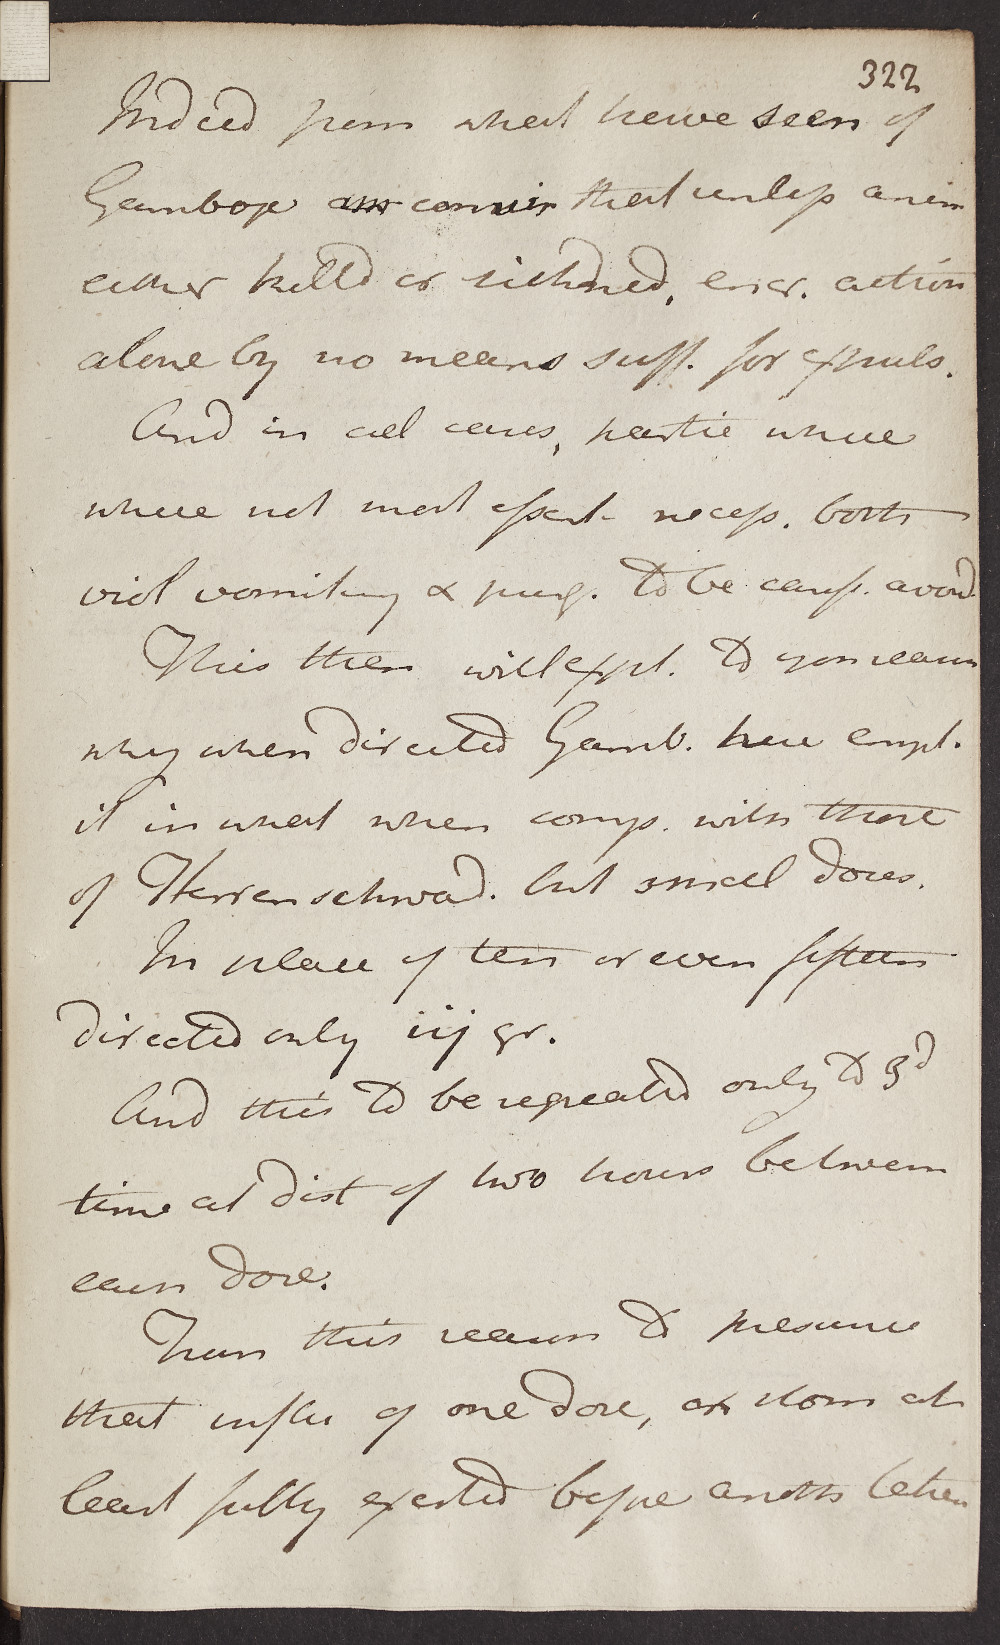 322
Indeed from what have seen of
Gamboge am convin that unless anim
either killd or sickned, encr. action
alone by no means suff. for expuls.
And in all cases, partic where
where not most essent. necess. both
viol vomiting & purg. to be caref. avoid
This then will expl. to you reason
why when directed Gamb. have empl.
it in what when comp. with those
of Herrenschwad. but small doses.
In place of ten or even fifteen
directed only iij gr.
And this to be repeated only to 3d
time at dist of two hours between
each dose.
From this reason to presume
that influ of one dose, on stom at
least fully exerted before anoth taken